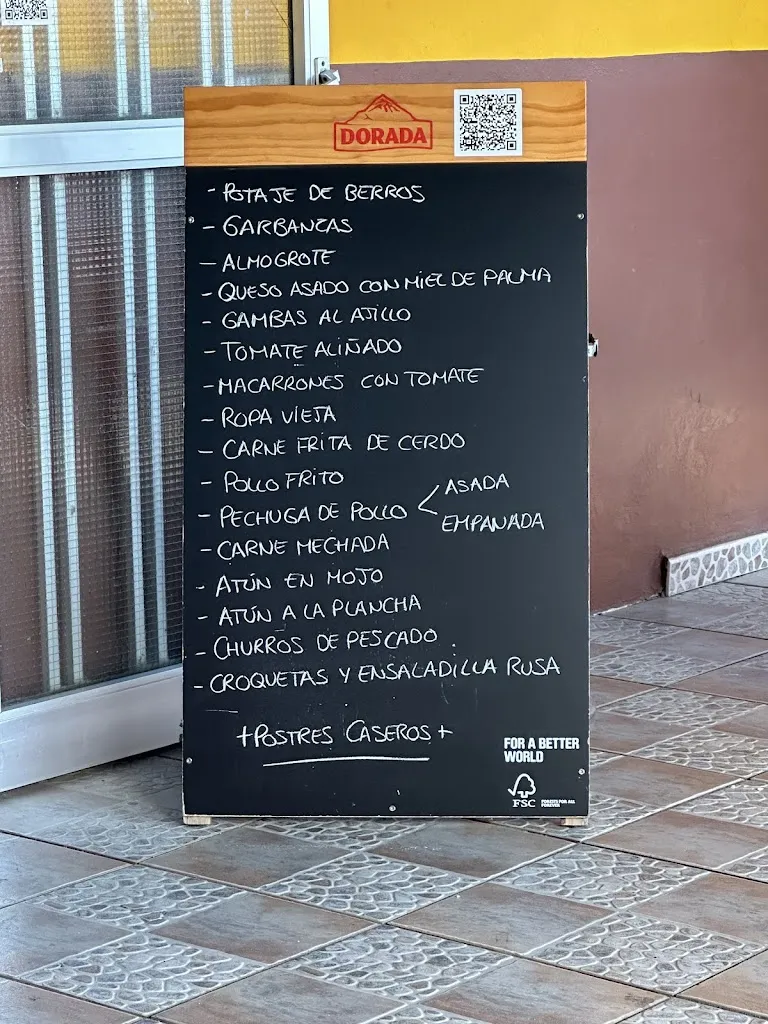 DORADA
- POTAJE DE BERROS
- GARBANZAS
- ALMOGROTE
- QUESO ASADO CON MIEL DE PALMA
- GAMBAS AL AJILLO
- TOMATE ALIÑADO
- MACARRONES CON TOMATE
- ROPA VIEJA
- CARNE FRITA DE CERDO
- POLLO FRITO
- PECHUGA DE POLLO < ASADA
EMPANADA
- CARNE MECHADA
- ATÚN EN MOJO
- ATÚN A LA PLANCHA
- CHURROS DE PESCADO
- CROQUETAS Y ENSALADILLA RUSA
+POSTRES CASEROS+
FOR A BETTER
WORLD
FSC
FORESTS FOR ALL
FOREVER